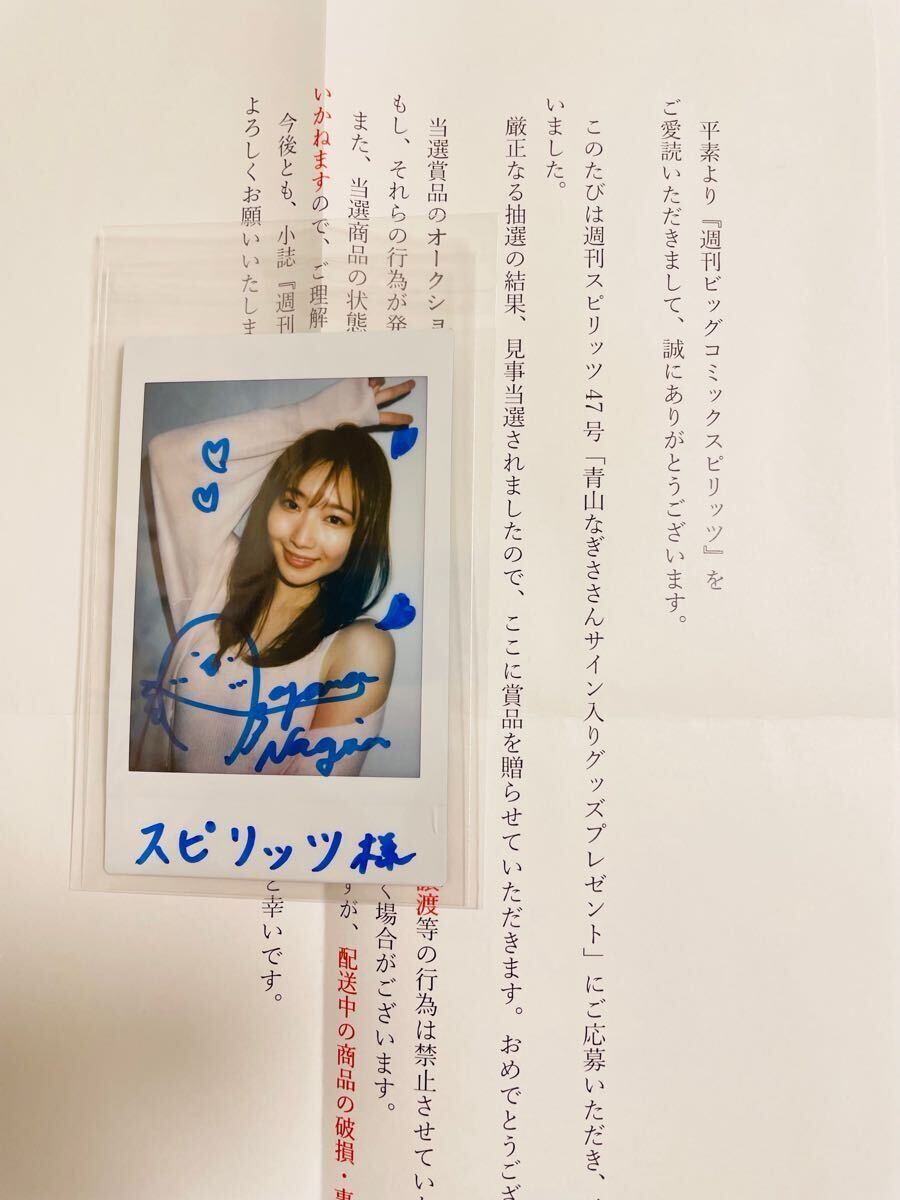 平素より『週刊ビッグコミックスピリッツ』を
ご愛読いただきまして、誠にありがとうございます。
このたびは週刊スピリッツ 47 号「青山なぎささんサイン入りグッズプレゼント」にご応募いただき、
いました。
厳正なる抽選の結果、見事当選されましたので、ここに賞品を贈らせていただきます。おめでとうござ
当選賞品のオークショ
譲渡等の行為は禁止させてい
もし、それらの行為が発
く場合がございます。
また、当選商品の状態
すが、配送中の商品の破損・事
いかねますので、ご理解
今後とも、小誌『週刊
と幸いです。
よろしくお願いいたしま
Aoyama
Nagisa
スピリッツ様